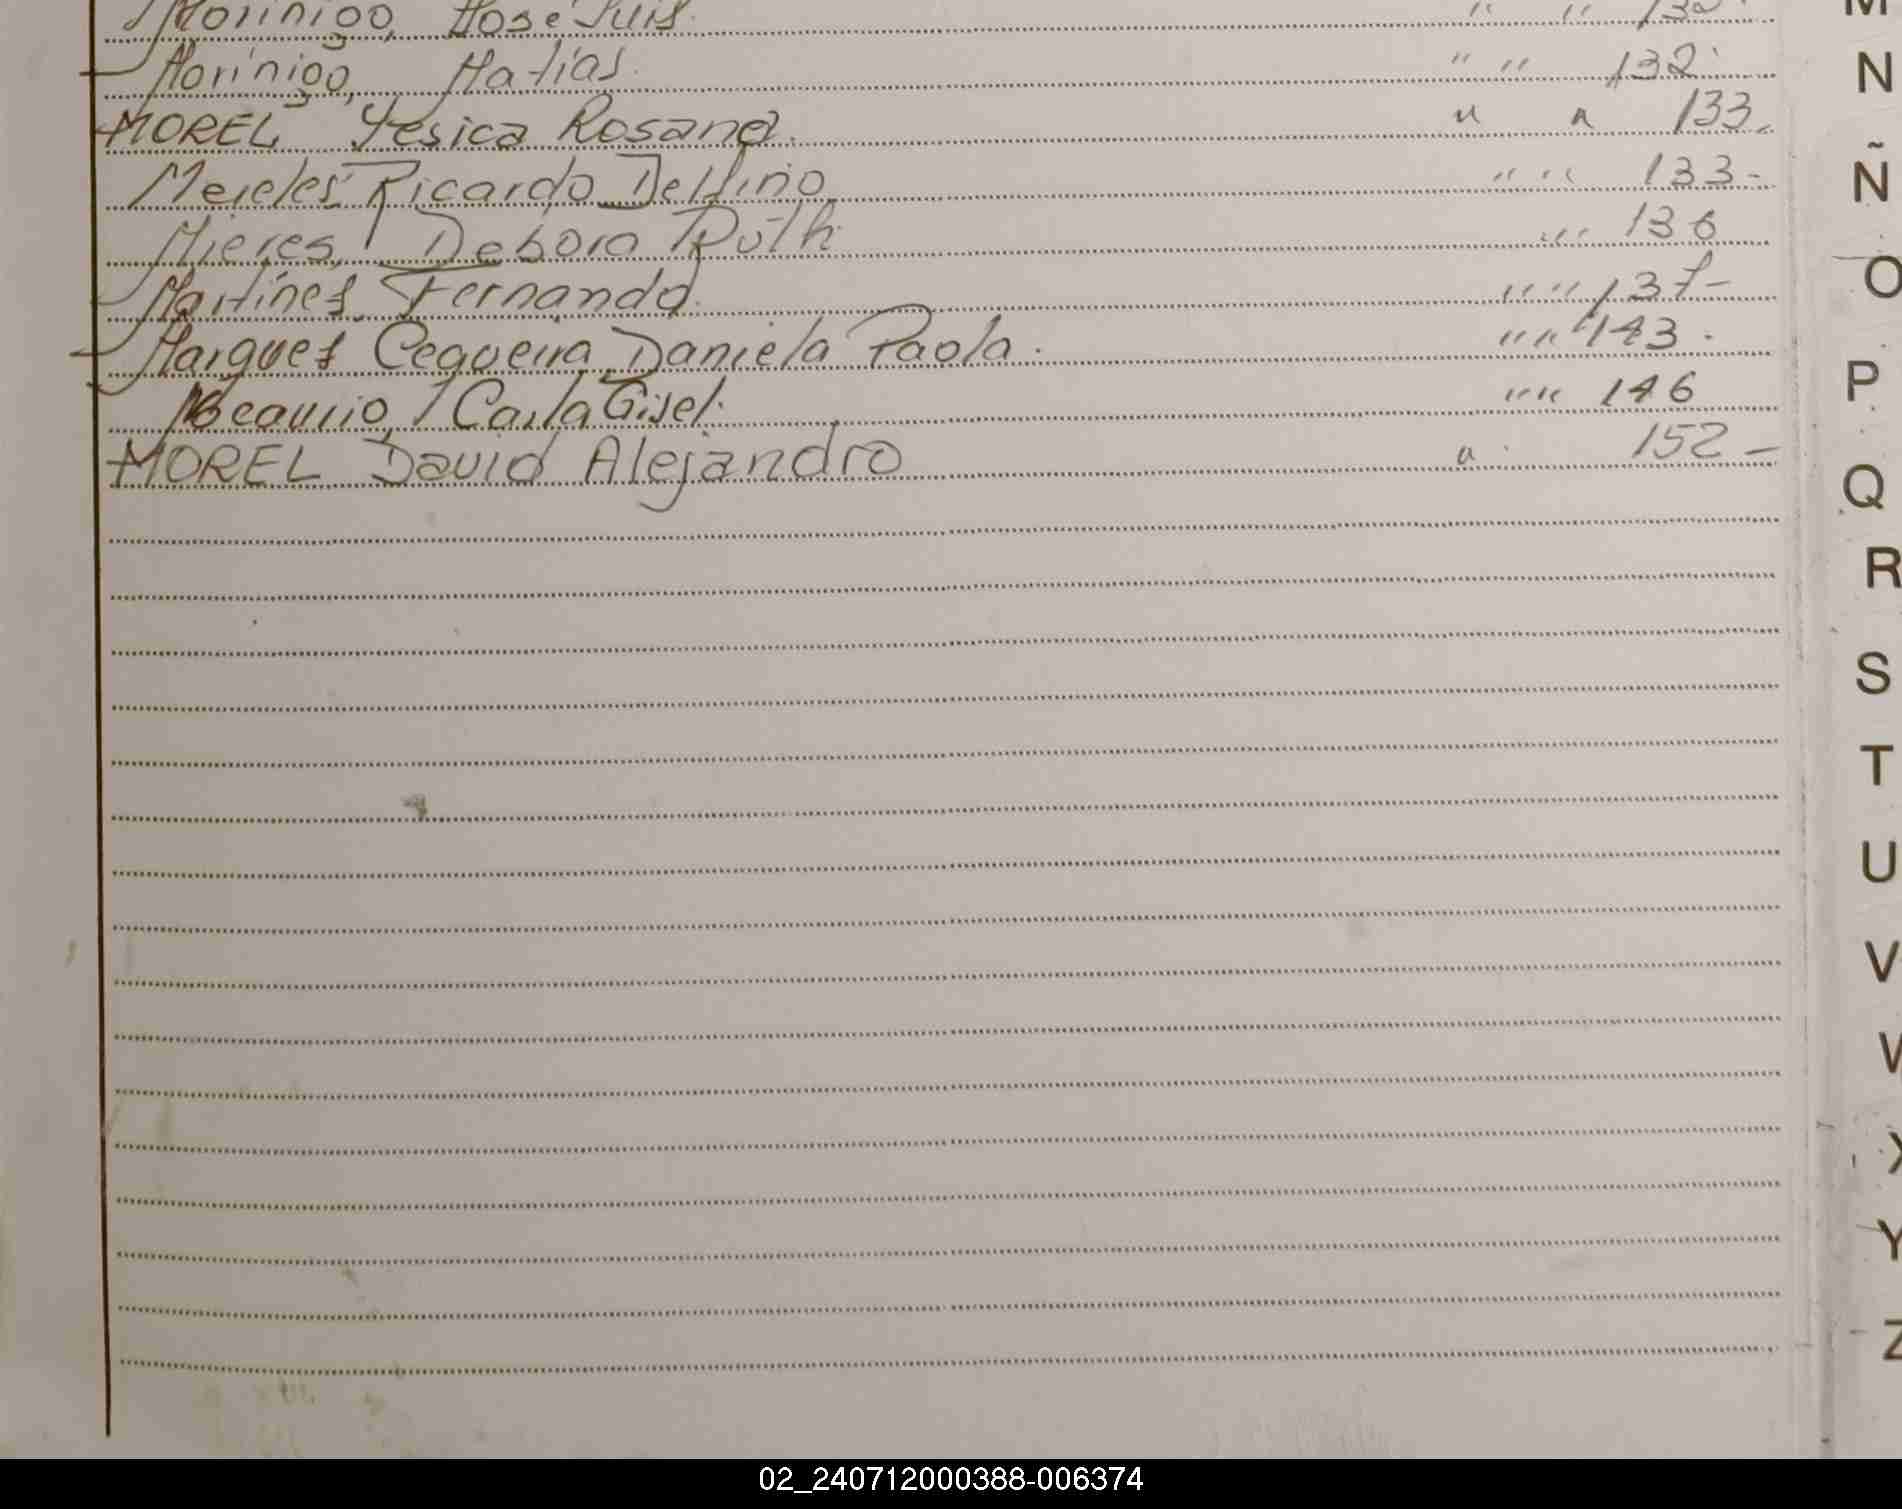 Morínigo, José Luis. " " 132.
Morínigo, Matías. " " 132.
MOREL Yesica Rosana. " " 133.
Meieles Ricardo Delfino " " 133-
Mieres, Debora Ruth. " " 136
Martínez, Fernando. " " 137-
Marquez Cequeira, Daniela Paola. " " 143.
Carla Gisel. " " 146
MOREL David Alejandro " 152-
M
N
Ñ
O
P
Q
R
S
T
U
V
W
X
Y
Z
02_240712000388-006374